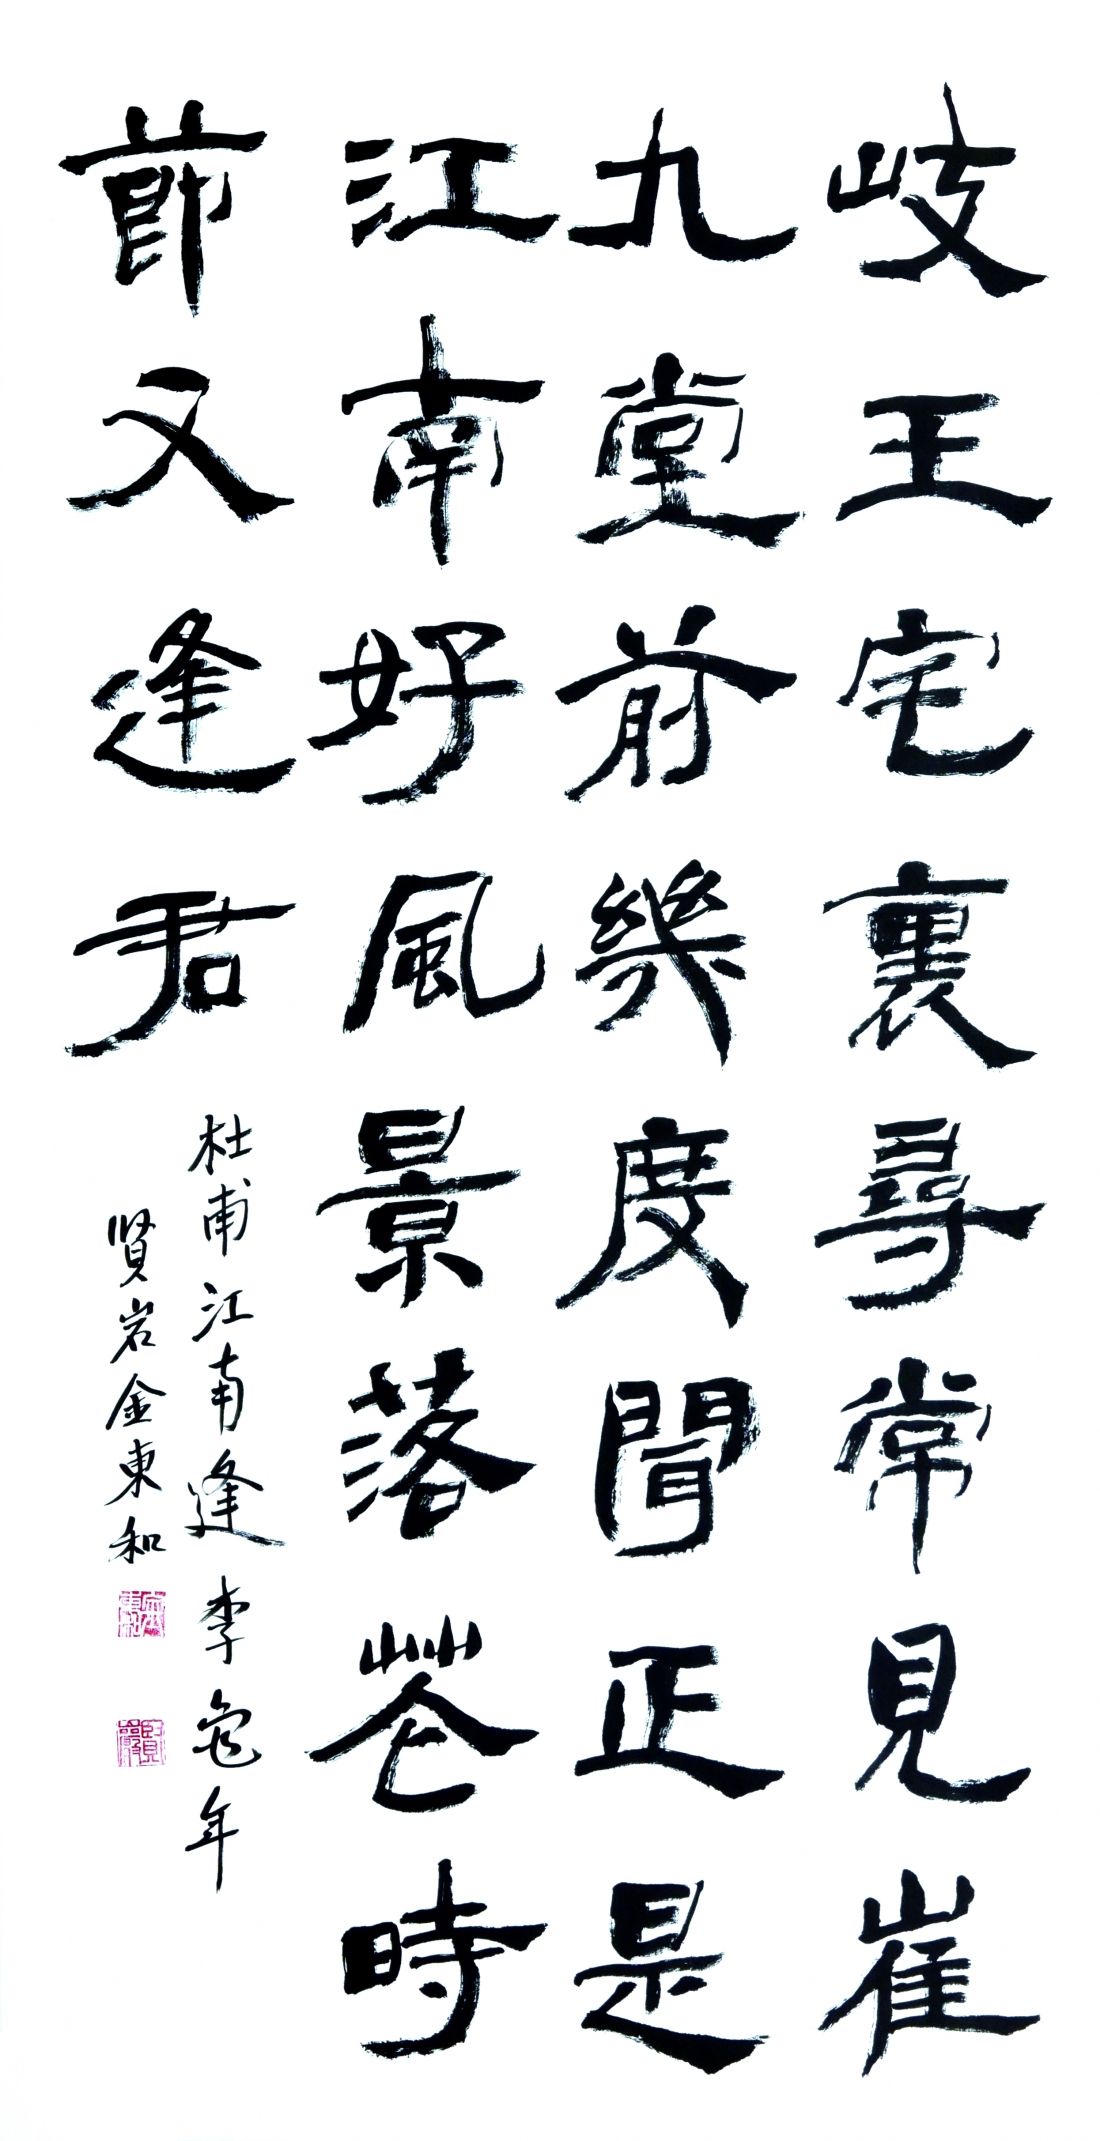 岐王宅裏尋常見崔
九堂前幾度聞正是
江南好風景落花時
節又逢君
杜甫江南逢李龜年
賢岩金東和